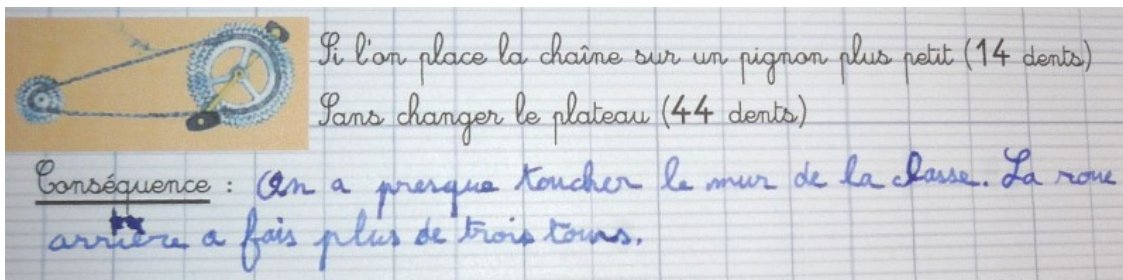 Si l'on place la chaîne sur un pignon plus petit (14 dents)
Sans changer le plateau (44 dents)
Conséquence : On a presque toucher le mur de la classe. La roue
arrière a fais plus de trois tours.